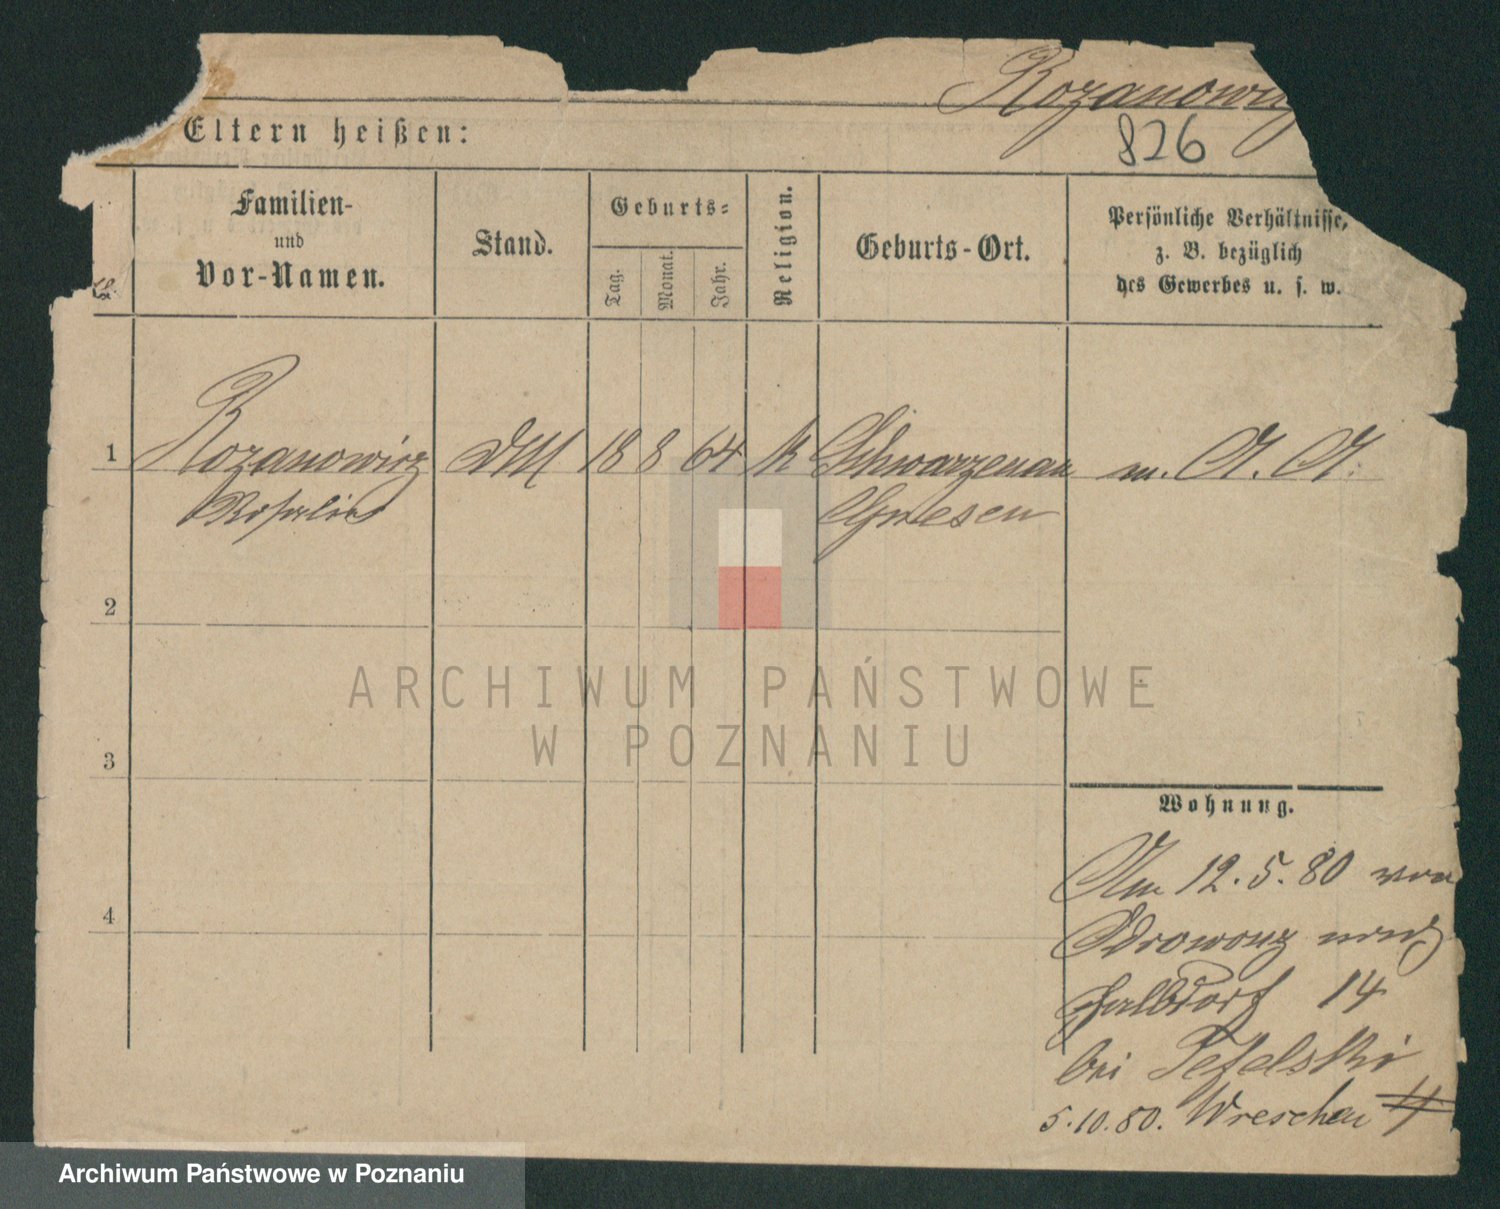 Rozanowicz
826
Eltern heißen:
Familien-
und
Vor-Namen.
Stand.
Geburts-
Tag.
Monat.
Jahr.
Religion.
Geburts-Ort.
Persönliche Verhältnisse,
z. B. bezüglich
des Gewerbes u. s. w.
1 Rozanowicz DM 18 8 64 k Schwarzenau m. A. A.
Rosalie Gnesen
2
3
4
Wohnung.
Am 12.5.80 von
Odrowonz nach
14
bei
5.10.80. Wreschen
ARCHIWUM PAŃSTWOWE
W POZNANIU
Archiwum Państwowe w Poznaniu